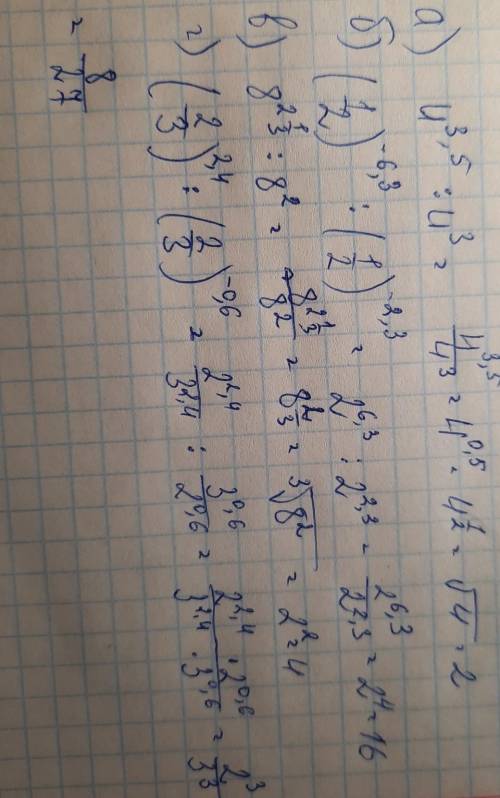 а) 4^3,5 : 4^3 = 4^3,5/4^3 = 4^0,5 = 4^1/2 = √4 = 2
б) (1/2)^-6,3 : (1/2)^-2,3 = 2^6,3 : 2^2,3 = 2^6,3/2^2,3 = 2^4 = 16
в) 8^2 1/3 : 8^2 = 8^2 1/3/8^2 = 8^2/3 = ³√8^2 = 2^2 = 4
г) (2/3)^2,4 : (2/3)^-0,6 = 2^2,4/3^2,4 : 3^0,6/2^0,6 = 2^2,4 · 2^0,6/3^2,4 · 3^0,6 = 2^3/3^3
= 8/27